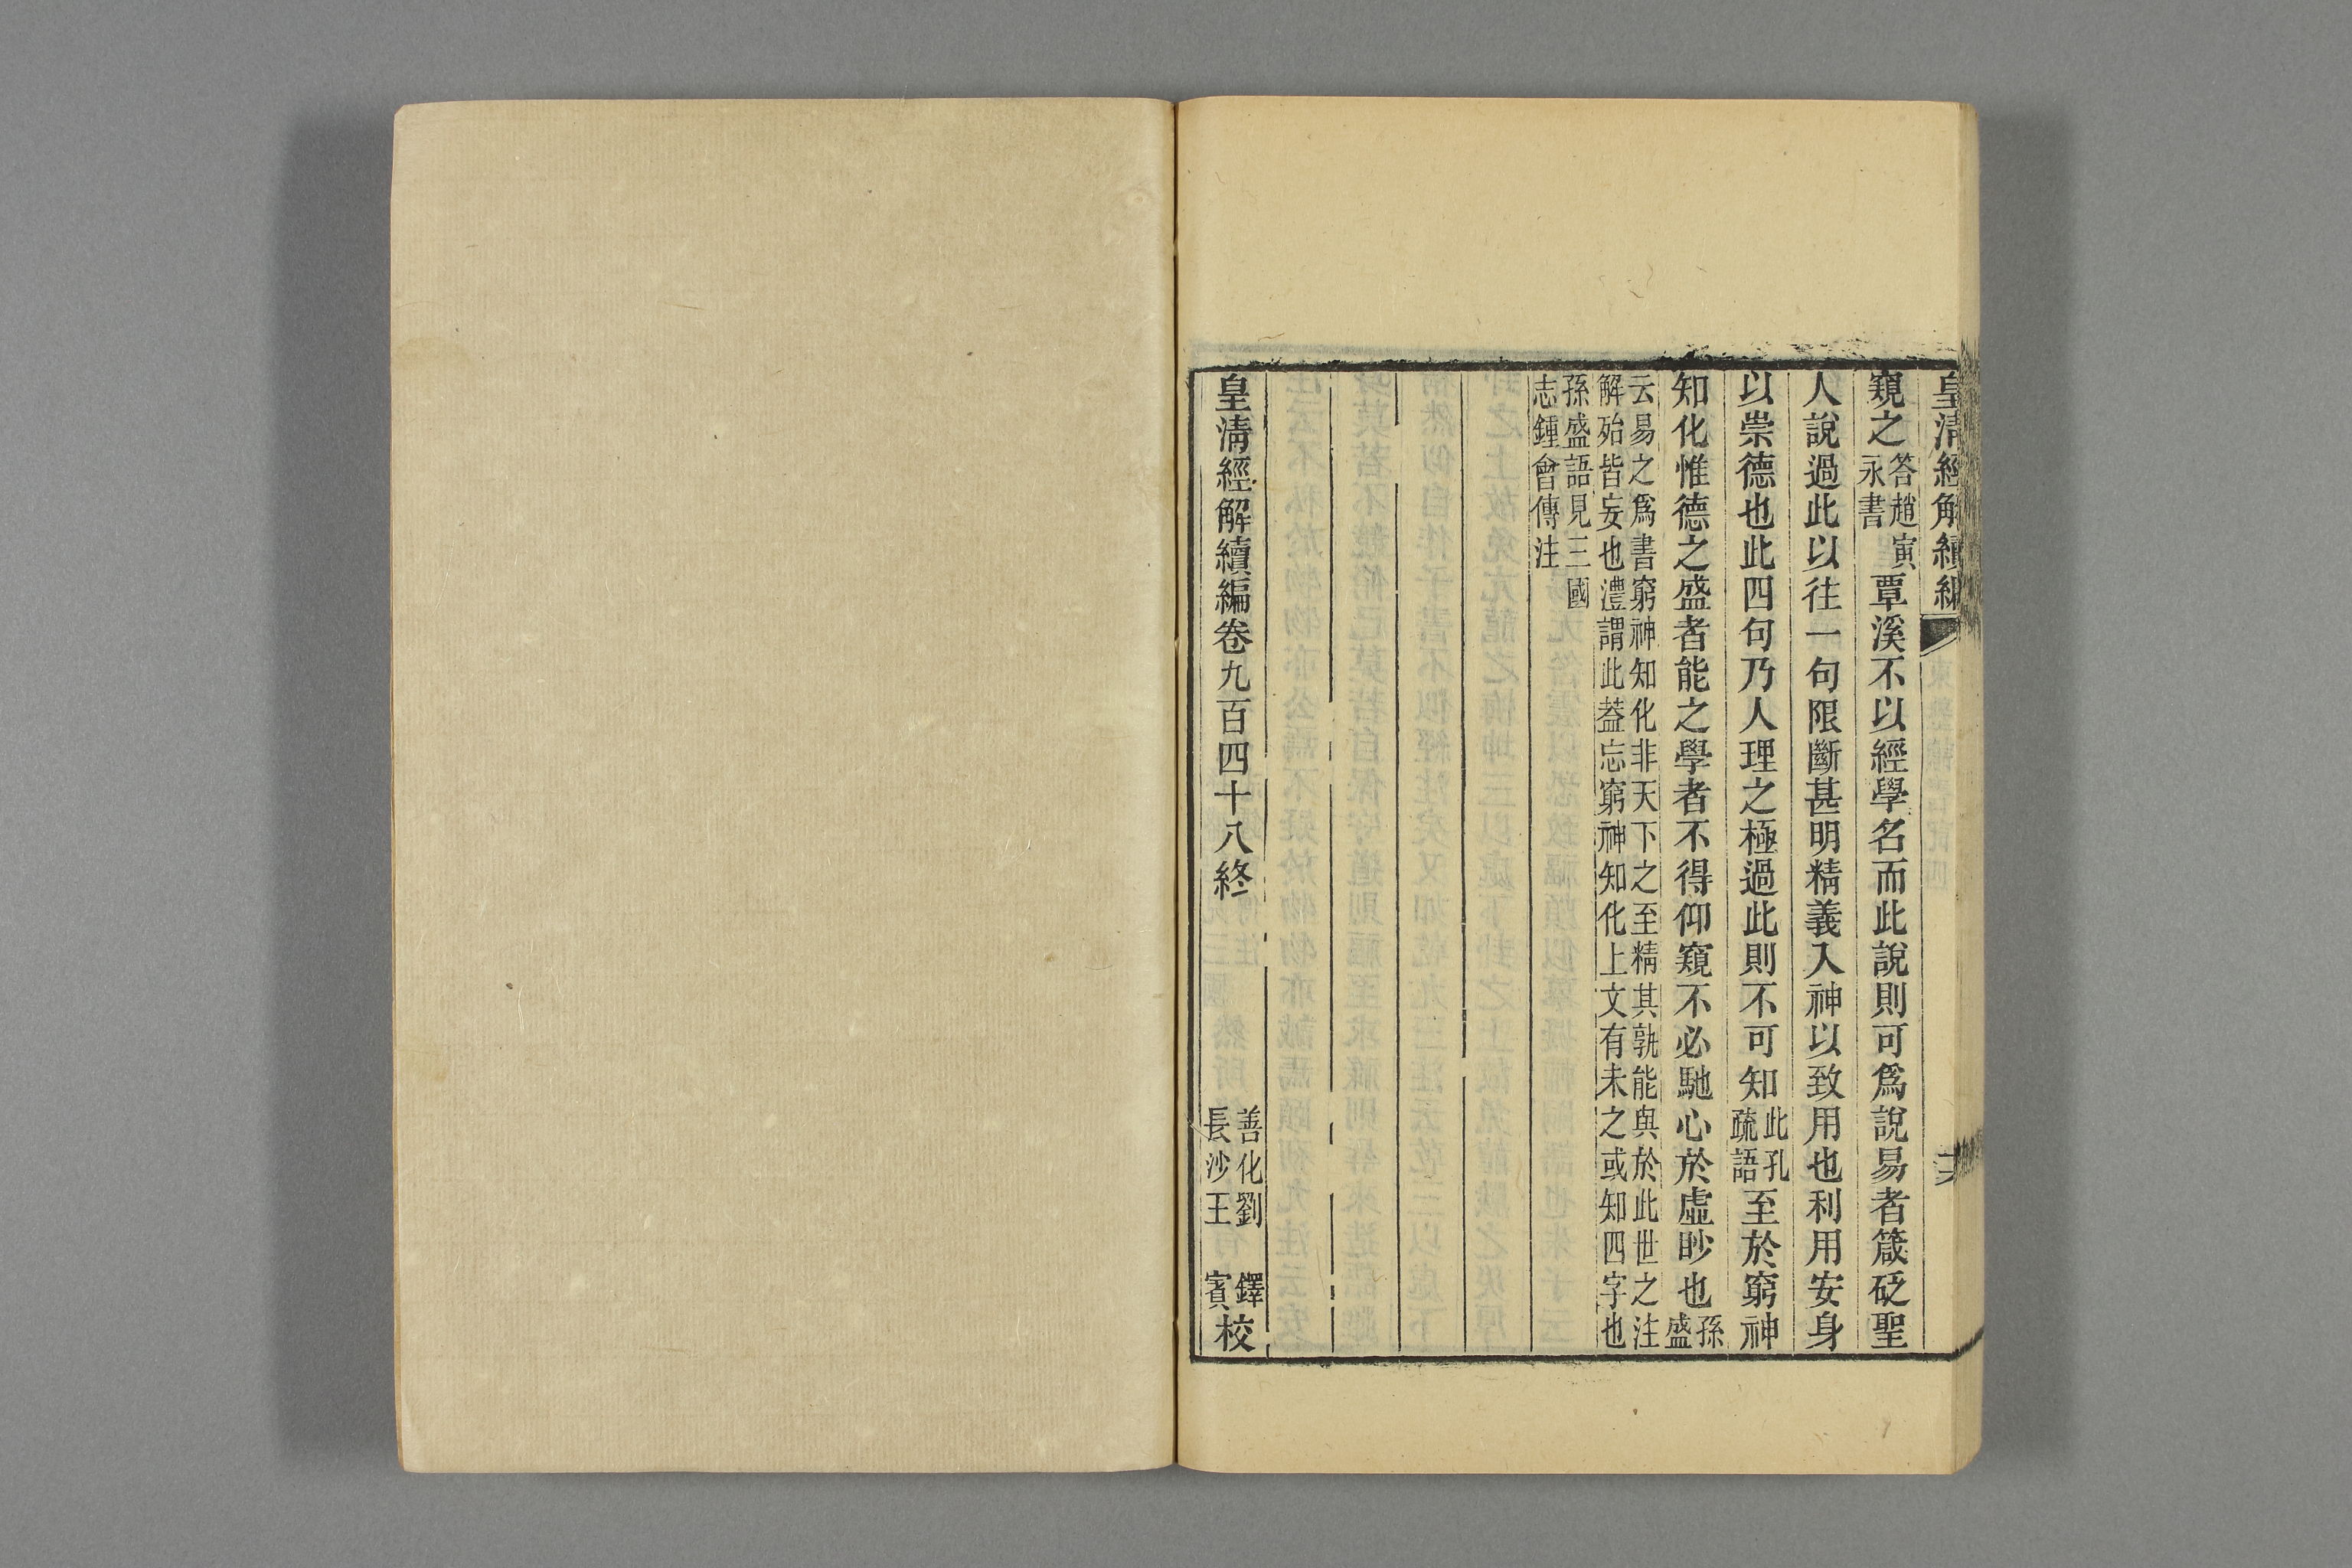 皇清經解續編
窺之答趙寅永書覃溪不以經學名而此說則可爲說易者箴砭聖
人說過此以往一句限斷甚明精義入神以致用也利用安身
以崇德也此四句乃人理之極過此則不可知此孔疏語至於窮神
知化惟德之盛者能之學者不得仰窺不必馳心於虛眇也孫盛
云易之爲書窮神知化非天下之至精其孰能與於此世之注
解殆皆妄也澧謂此葢忘窮神知化上文有未之或知四字也
孫盛語見三國
志鍾會傳注
皇清經解續編卷九百四十八終
善化劉鐸
長沙王賓校